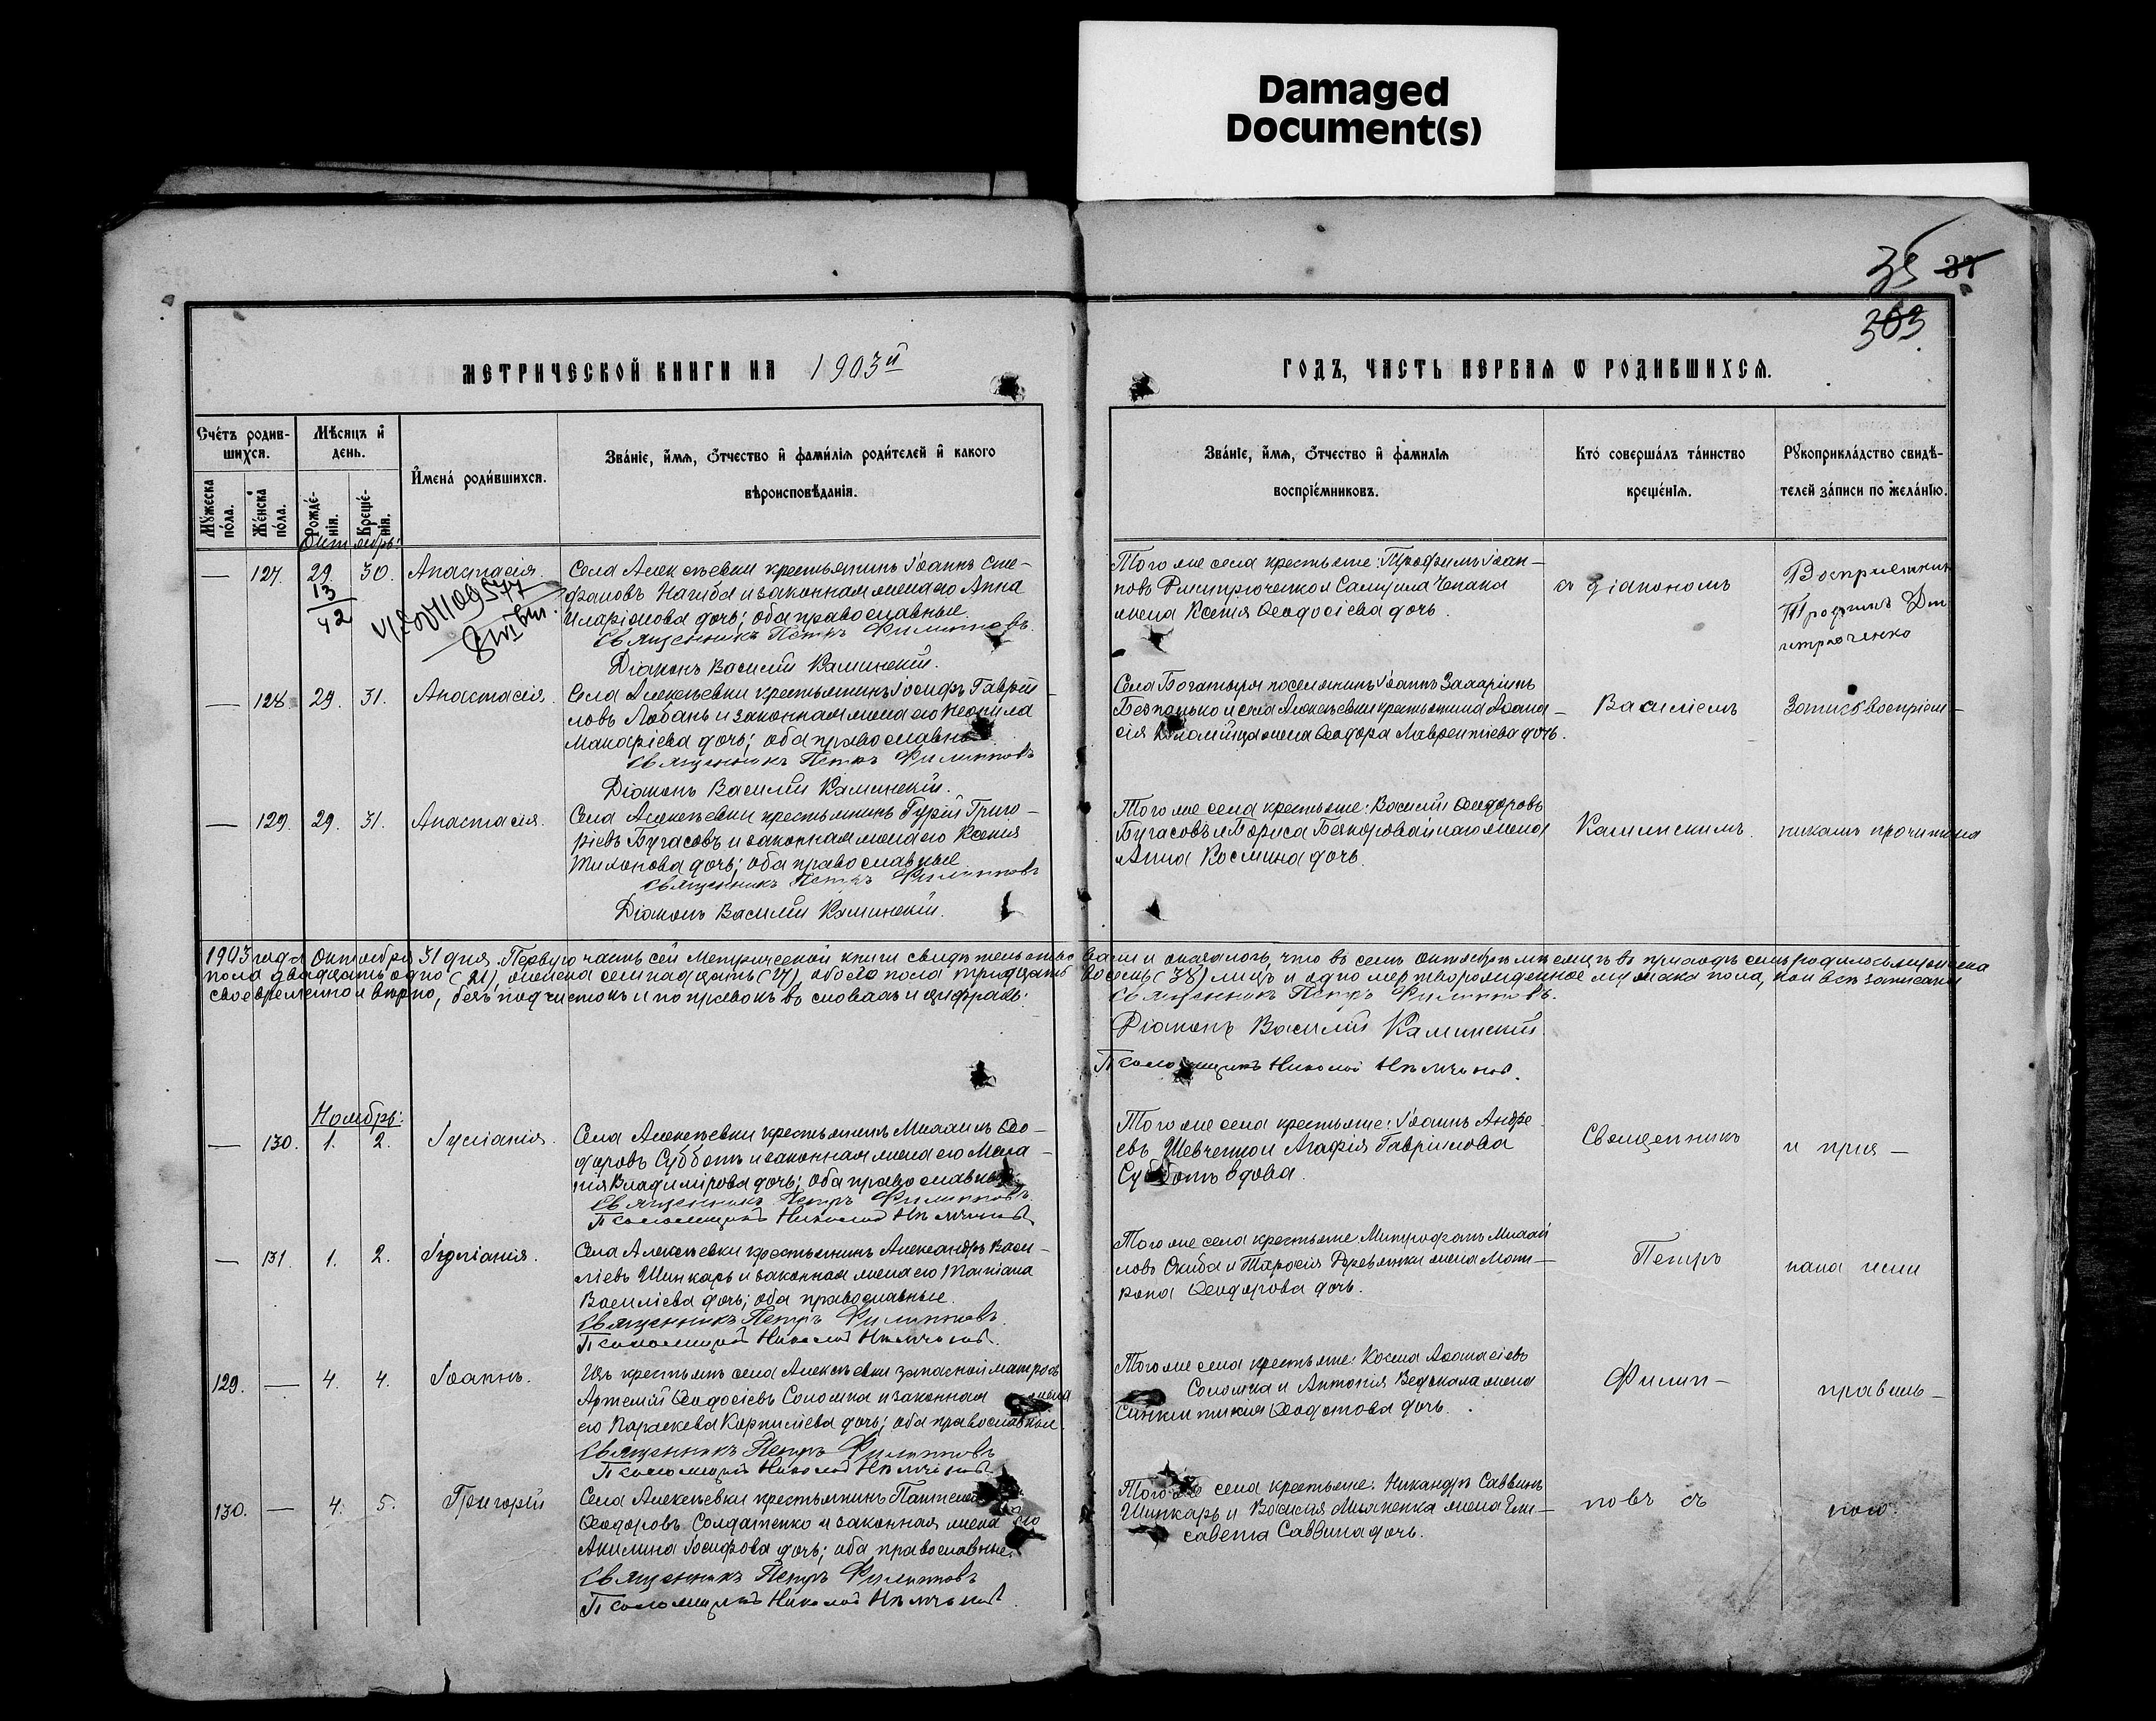 Damaged
Document(s)
35 37
303
МЕТРИЧЕСКОЙ КНИГИ НА 1903й
ГОДЪ, ЧАСТЬ ПЕРВАЯ Ѡ РОДИВШИХСЯ.
Счетъ родив-
шихся.
Мѣсяцъ и
день.
Имена родившихся.
Званіе, имя, отчество и фамилія родителей и какого
вѣроисповѣданія.
Мужеска
пола.
Женска
пола.
Рожде-
нія.
Креще-
нія.
Званіе, имя, отчество и фамилія
воспріемниковъ.
Кто совершалъ таинство
крещенія.
Рукоприкладство свидѣ-
телей записи по желанію.
Октябрь:
— 127. 29. 30. Анастасія.
13
42
Села Алексѣевки крестьянинъ Іоаннъ Сте-
фановъ Нагиба и законная жена его Анна
Иларіонова дочь; оба православные.
Священникъ Петръ Филипповъ.
Діаконъ Василій Каминскій.
Того же села крестьяне: Трофимъ Іоан-
новъ
жена Ксенія Ѳеодосіева дочь.
съ діакономъ
Воспріемникъ
Трофимъ Дми
— 128. 29. 31. Анастасія.
Села Алексѣевки крестьянинъ Іосифъ Гаврии-
ловъ Лобань и законная жена его Неонила
Макаріева дочь; оба православные.
Священникъ Петръ Филипповъ
Діаконъ Василій Каминскій.
Села Богатыря поселянинъ Іоаннъ Захаріинъ
и села Алексѣевки крестьянина Аѳана-
сія жена Ѳеодора Лаврентіева дочь.
Василіемъ
Запись воспріем-
— 129. 29. 31. Анастасія.
Села Алексѣевки крестьянинъ Гурій Григо-
ріевъ Бугасовъ и законная жена его Ксенія
Тихонова дочь; оба православные.
Священникъ Петръ Филипповъ
Діаконъ Василій Каминскій.
Того же села крестьяне: Василій Ѳеодоровъ
Бугасовъ и Бориса жена
Анна Космина дочь.
Каминскимъ.
никамъ прочитана
1903 года Октября 31 дня. Первую часть сей Метрической книги свидѣтельствовали и оказалось, что въ семъ октябрѣ мѣсяцѣ въ приходѣ семъ родилось мужеска
пола двадцать одно (21), женска семнадцать (17), обоего пола тридцать восемь (38) лицъ и одно мертворожденное мужеска пола, кои всѣ записаны
своевременно и вѣрно, безъ подчистокъ и поправокъ въ словахъ и цифрахъ:
Священникъ Петръ Филипповъ.
Діаконъ Василій Каминскій.
Псаломщикъ Николай
Ноябрь:
— 130. 1. 2. Іуліанія.
Села Алексѣевки крестьянинъ Михаилъ Ѳео-
доровъ Субботъ и законная жена его Мела-
нія Владимірова дочь; оба православные.
Священникъ Петръ Филипповъ.
Псаломщикъ Николай
Того же села крестьяне: Іоаннъ Андре-
евъ Шевченко и Агафія Гавриилова
Субботъ вдова.
Священникъ
и при-
— 131. 1. 2. Іуліанія.
Села Алексѣевки крестьянинъ Александръ Васи-
ліевъ Шинкарь и законная жена его Татіана
Василіева дочь; оба православные.
Священникъ Петръ Филипповъ.
Псаломщикъ Николай
Того же села крестьяне: Митрофанъ Михаи-
ловъ Скиба и Тарасія жена Мат-
рона Ѳеодорова дочь.
Петръ
нана ими
129. — 4. 4. Іоаннъ.
Изъ крестьянъ села Алексѣевки запасной матросъ
Артемій Ѳеодосіевъ Соломка и законная жена
его Параскева Корниліева дочь; оба православные.
Священникъ Петръ Филипповъ
Псаломщикъ Николай
Того же села крестьяне: Косма Аѳанасіевъ
Соломка и Антонія жена
Синклитикія Ѳеодотова дочь.
Филип-
правиль-
130. — 4. 5. Григорій
Села Алексѣевки крестьянинъ
Ѳеодоровъ Солдатенко и законная жена его
Акилина Іосифова дочь; оба православные.
Священникъ Петръ Филипповъ
Псаломщикъ Николай
Того же села крестьяне: Никандръ Саввинъ
Шинкарь и Василія жена Ели-
савета Саввина дочь.
повъ съ
ною.